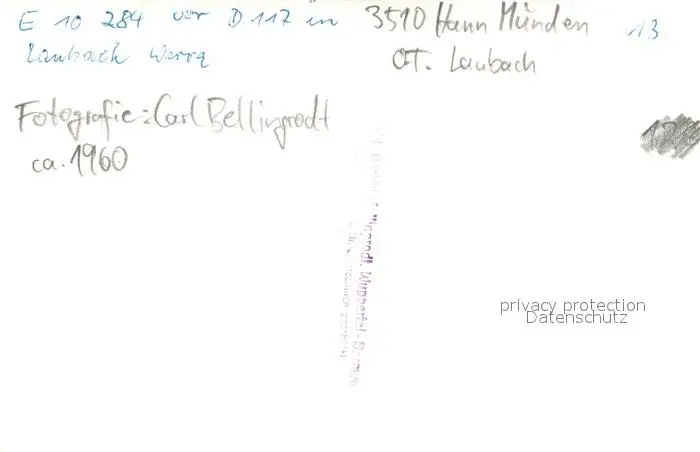 E 10 284 vor D 117 in
Laubach Werra
3510 Hann Münden
OT. Laubach
13
Fotografie: Carl Bellingrodt
ca. 1960
13
privacy protection
Datenschutz